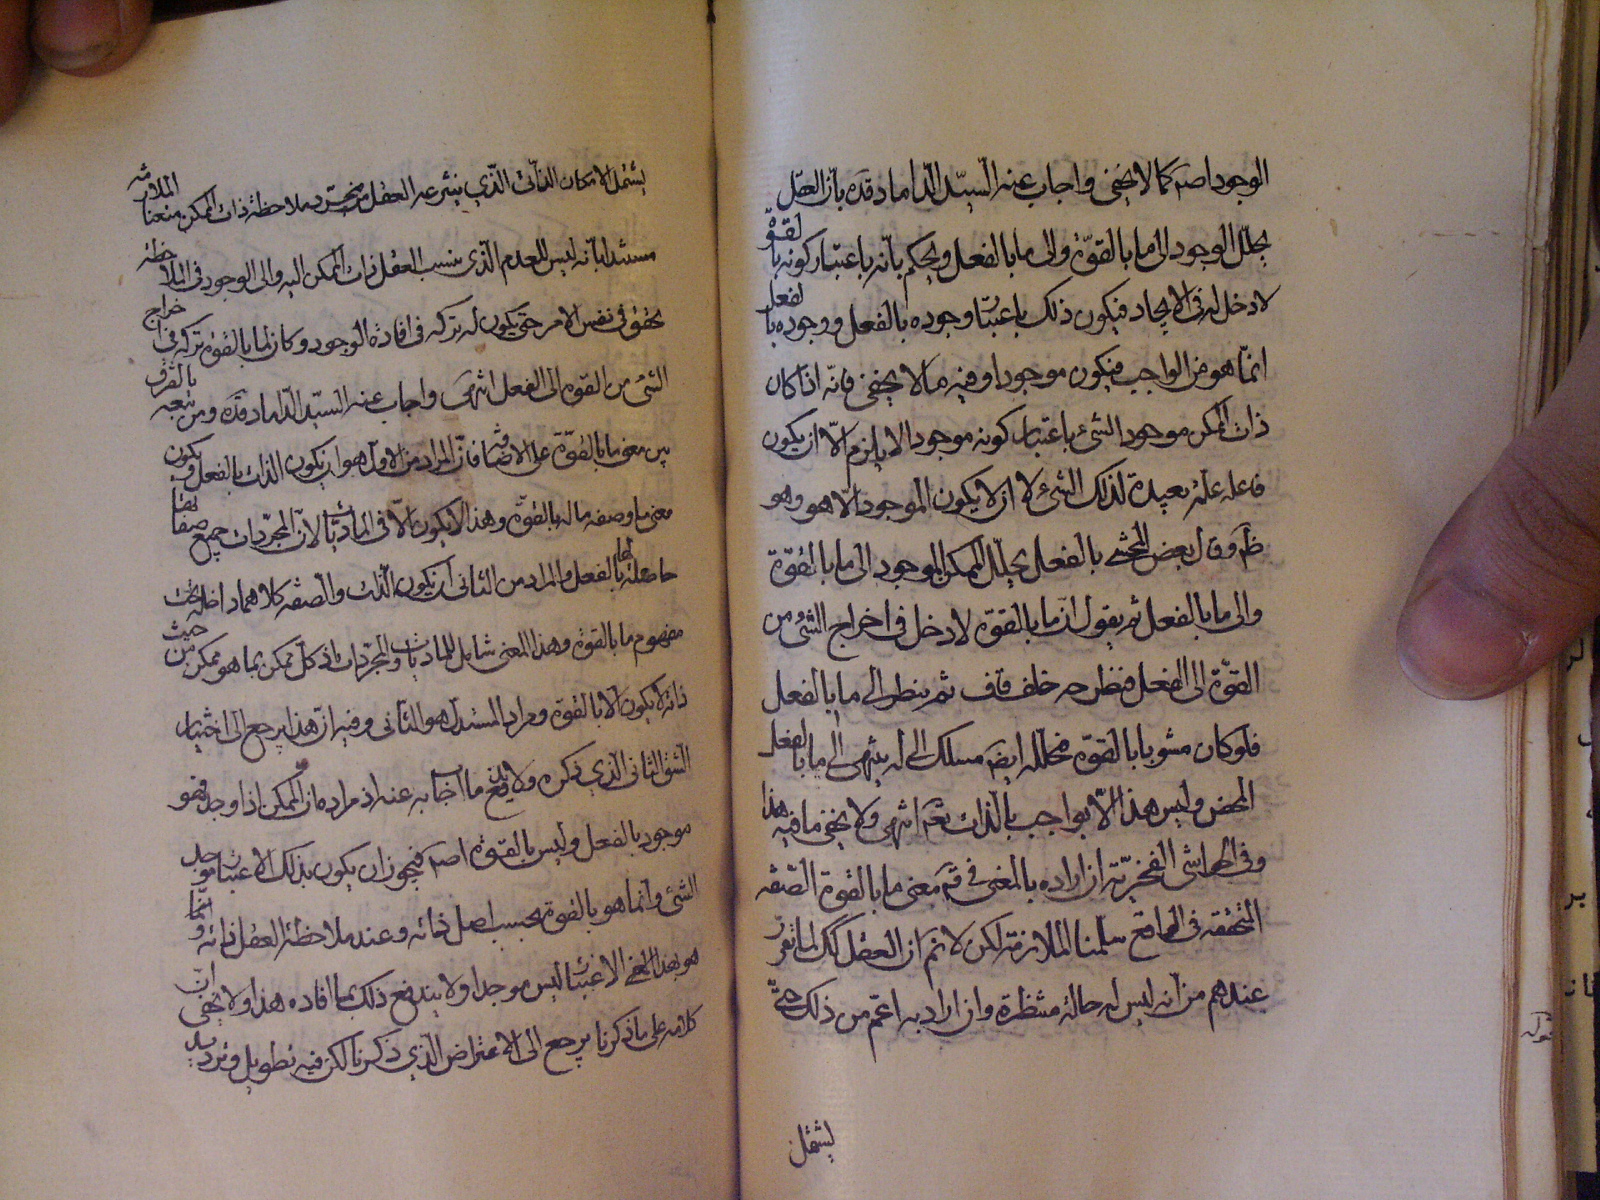 الوجود اصم كما لا يخفى واجاب عنه السيّد الدّاماد قده بان العقل
يحلل الوجود الى ما بالقوّة والى ما بالفعل ويحكم بانه باعتبار كونه بالقوّة
لا دخل له فى الايجاد فيكون ذلك باعتبار وجوده بالفعل ووجوده بالفعل
انّما هو من الواجب فيكون موجودا وفيه ما لا يخفى فانّه اذا كان
ذات الممكن موجود الشئ باعتبار كونه موجودا لا يلزم الّا ان يكون
فاعله علة بعيدة لذلك الشئ لا ان لا يكون الموجود الّا هو وهو
ظم وقال بعض المحشى بالفعل يحلل الممكن الموجود الى ما بالقوّة
والى ما بالفعل ثم يقول انّ ما بالقوّة لا دخل فى اخراج الشئ من
القوّة الى الفعل فنظرحه خلف قاف ثم ينظر الى ما بالفعل
فلو كان مشوبا بالقوّة فحلله ايضم مسلك الى ان ينتهى الى ما بالفعل
المحض وليس هذا الّا بواجب بالذات نعم انتهى ولا يخفى ما فيه هذا
وفى الحواشى الفخريّة ان اراده بالمعنى فى قم معنى ما بالقوة الصّفه
المتحققه فى الواقع سلمنا الملازمة لكن لا نم ان العقل كك لما تقرّر
عندهم من انه ليس له حالة منتظرة وان اراد به اعمّ من ذلك حتّى
يشمل
يشمل الامكان الذّاتى الّذى ينتزعه العقل بملاحظة ذات الممكن منعنا الملازمة
مستندا بانّه ليس للعدم الّذى ينسب العقل ذات الممكن اليه والى الوجود فى الملاحظه
تحقق فى نفس الامر حتى يكون له شركه فى افادة الوجود وكان لما بالقوّة شركه فى اخراج
الشئ من القوه الى الفعل انتهى واجاب عنه السيّد الدّاماد قده ومن تبعه بالفرق
بين معنى ما بالقوّة على الاضافة فانّ المراد من الاول هو ان يكون الذات بالفعل ويكون
معنى ما وصفه ما له بالقوّة وهذا لا يكون الّا فى المادّيّات لانّ المجرّدات جميع صفاتها
حاصلة لها بالفعل والمراد من الثانى ان يكون الذات والصّفه كلاهما داخلة تحت
مفهوم ما بالقوّة وهذا المعنى شامل للمادّيات والمجرّدات اذ كلّ ممكن بما هو ممكن من حيث
ذاته لا يكون الّا بالقوّة ومراد المستدل هو الثانى وفيه ان هذا يرجع الى اختيار
الشق الثانى الّذى ذكره ولا يدفع ما اجاب به عنه اذ مراده ان الممكن اذا وجد فهو
موجود بالفعل وليس بالقوّة اصم فيجوز ان يكون بذلك الاعتبار موجد
الشئ وانّما هو بالقوّة بحسب اصل ذاته وعند ملاحظة العقل ذاته وانّما
هو بهذا الاعتبار ليس موجدا ولا يندفع ذلك بما افاده هذا ولا يخفى ان
كلامه على ما ذكرنا يرجع الى الاعتراض الّذى ذكرنا لكن فيه تطويل وترديد